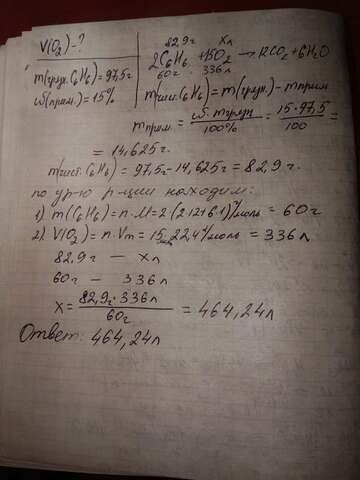 V(O₂)-?
m(грязн.C₆H₆)=97,5г
ω(прим.)=15%
82,9г xл
2C₆H₆ + 15O₂ → 12CO₂ + 6H₂O
60г 336л
m(чист.C₆H₆) = m(грязн.) - mприм
mприм. = ω·mгрязн / 100% = 15·97,5 / 100 =
= 14,625г.
m(чист.C₆H₆) = 97,5г - 14,625г = 82,9г.
по ур-ю р-ции находим:
1) m(C₆H₆) = n·M = 2·(2·12+6·1)г/моль = 60г
2) V(O₂) = n·Vm = 15·22,4л/моль = 336л
82,9г — xл
60г — 336л
x = 82,9г·336л / 60г = 464,24л
Ответ: 464,24л